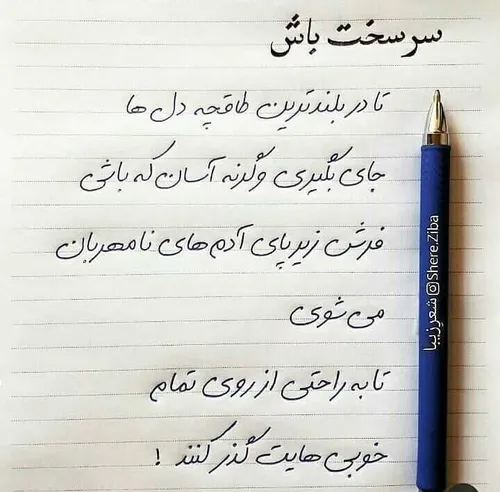 سرسخت باش
تا در بلندترین طاقچه دل ها
جای بگیری وگرنه آسان که باشی
فرش زیر پای آدم های نامهربان
می شوی
تا به راحتی از روی تمام
خوبی هایت گذر کنند !
شعر زیبا @Shere.Ziba